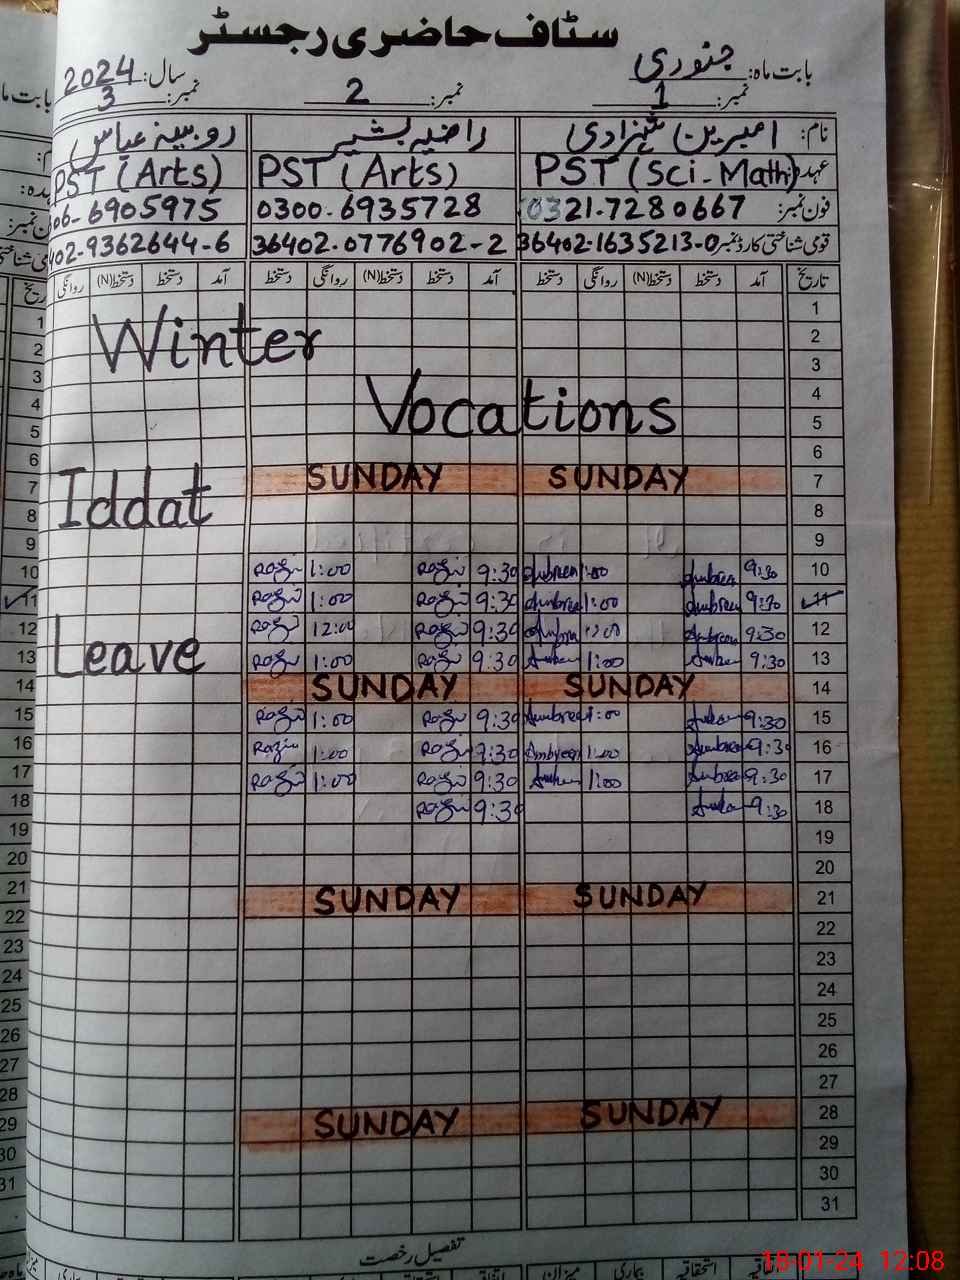 سٹاف حاضری رجسٹر
بابت ماہ: جنوری سال: 2024
نمبر: 1 نمبر: 2 نمبر: 3
نام: امبرین شہزادی راضیہ بشیر روبینہ عباس
عہدہ: PST (Sci-Math) PST (Arts) PST (Arts)
فون نمبر: 0321-7280667 0300-6935728 06-6905975
قومی شناختی کارڈ نمبر 36402-1635213-0 36402-0776902-2 402-9362644-6
تاریخ آمد دستخط دستخط(N) روانگی دستخط آمد دستخط روانگی دستخط آمد دستخط دستخط(N) روانگی
1
2 Winter
3
4 Vocations
5
6
7 SUNDAY SUNDAY
8 Iddat
9
10 9:30 Ambreen 1:00 Ambreen 9:30 Razia 1:00 Razia
11 9:30 Ambreen 1:00 Ambreen 9:30 Razia 1:00 Razia
12 9:30 Ambreen 1:00 Ambreen 9:30 Razia 12:00 Razia
13 9:30 Ambreen 1:00 Ambreen 9:30 Razia 1:00 Razia Leave
14 SUNDAY SUNDAY
15 9:30 Ambreen 1:00 Ambreen 9:30 Razia 1:00 Razia
16 9:30 Ambreen 1:00 Ambreen 9:30 Razia 1:00 Razia
17 9:30 Ambreen 1:00 Ambreen 9:30 Razia 1:00 Razia
18 9:30 Ambreen 9:30 Razia
19
20
21 SUNDAY SUNDAY
22
23
24
25
26
27
28 SUNDAY SUNDAY
29
30
31
تفصیل رخصت
18-01-24 12:08